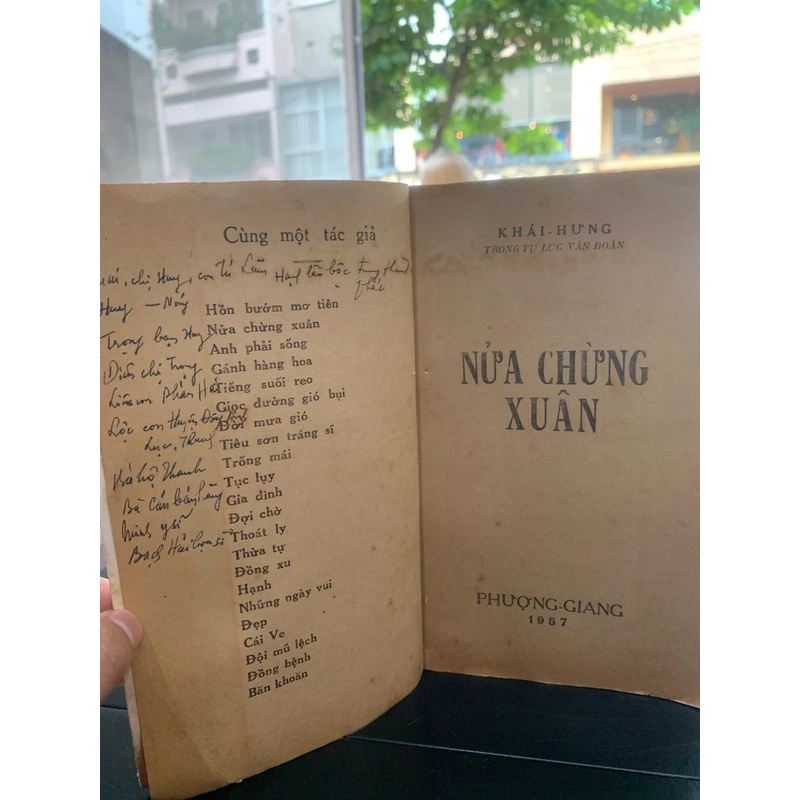 Cùng một tác giả
chị Huy, con Tú Lãm
Huy
Trọng bạn Huy
Diên chị Trọng
Lộc con Huyện
Bà hộ Thanh
Bà Cán bán hàng
Minh y sĩ
Bạch Hải họa sĩ
Hồn bướm mơ tiên
Nửa chừng xuân
Anh phải sống
Gánh hàng hoa
Tiếng suối reo
Giọc đường gió bụi
Đời mưa gió
Tiêu sơn tráng sĩ
Trống mái
Tục lụy
Gia đình
Đợi chờ
Thoát ly
Thừa tự
Đồng xu
Hạnh
Những ngày vui
Đẹp
Cái Ve
Đội mũ lệch
Đồng bệnh
Băn khoăn
KHÁI-HƯNG
TRONG TỰ LỰC VĂN ĐOÀN
NỬA CHỪNG
XUÂN
PHƯỢNG-GIANG
1957